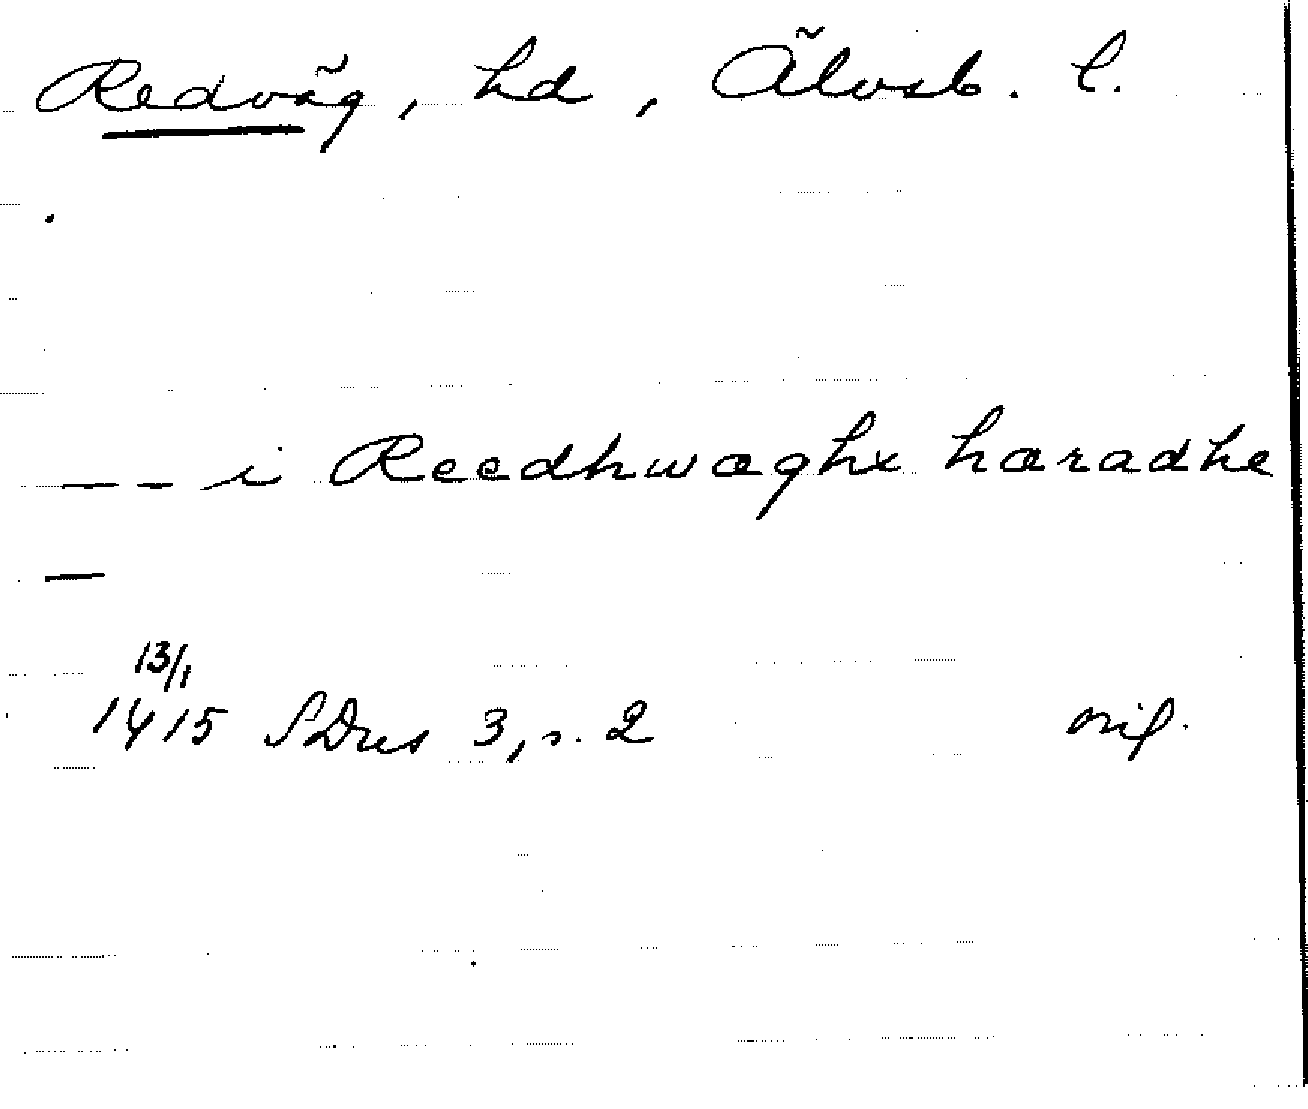 Redväg, hd, Älvsb. l.
— — i Reedhwæghx hæradhe
—
13/1
1415 SDns 3, s. 2 orig.